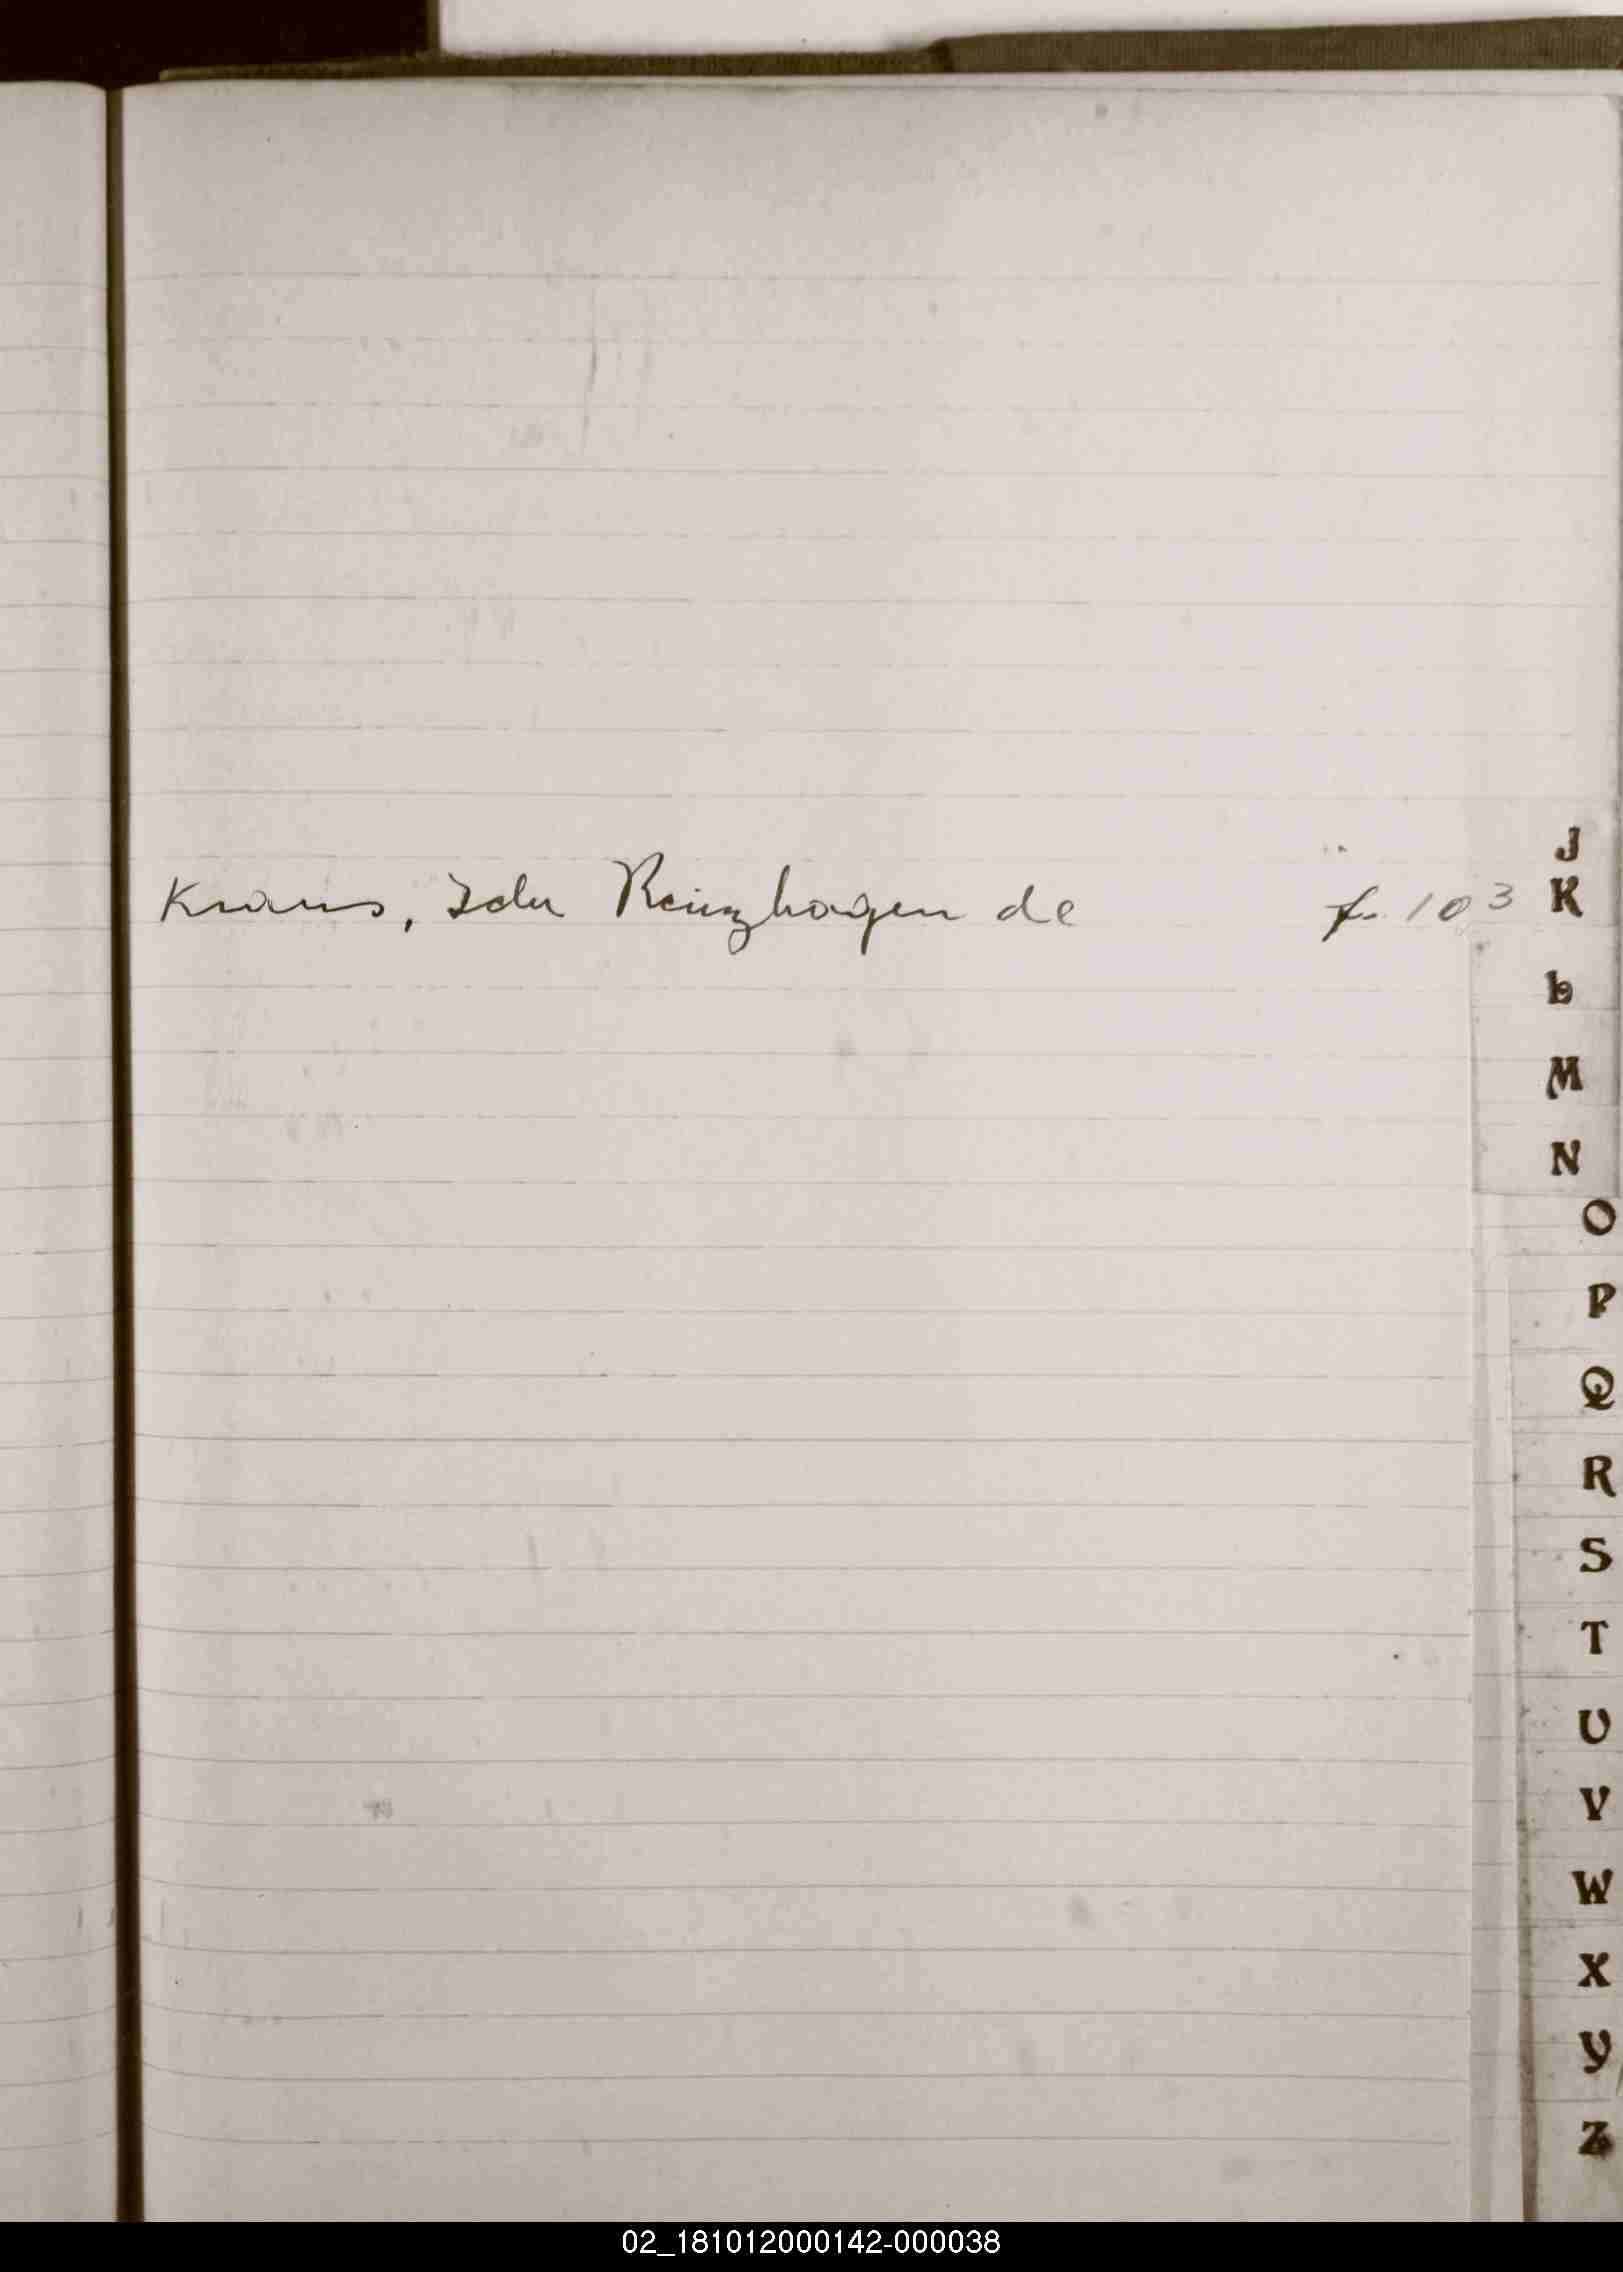 Kraus, Ida Renzhagen de f. 103
J
K
L
M
N
O
P
Q
R
S
T
U
V
W
X
Y
Z
02_181012000142-000038